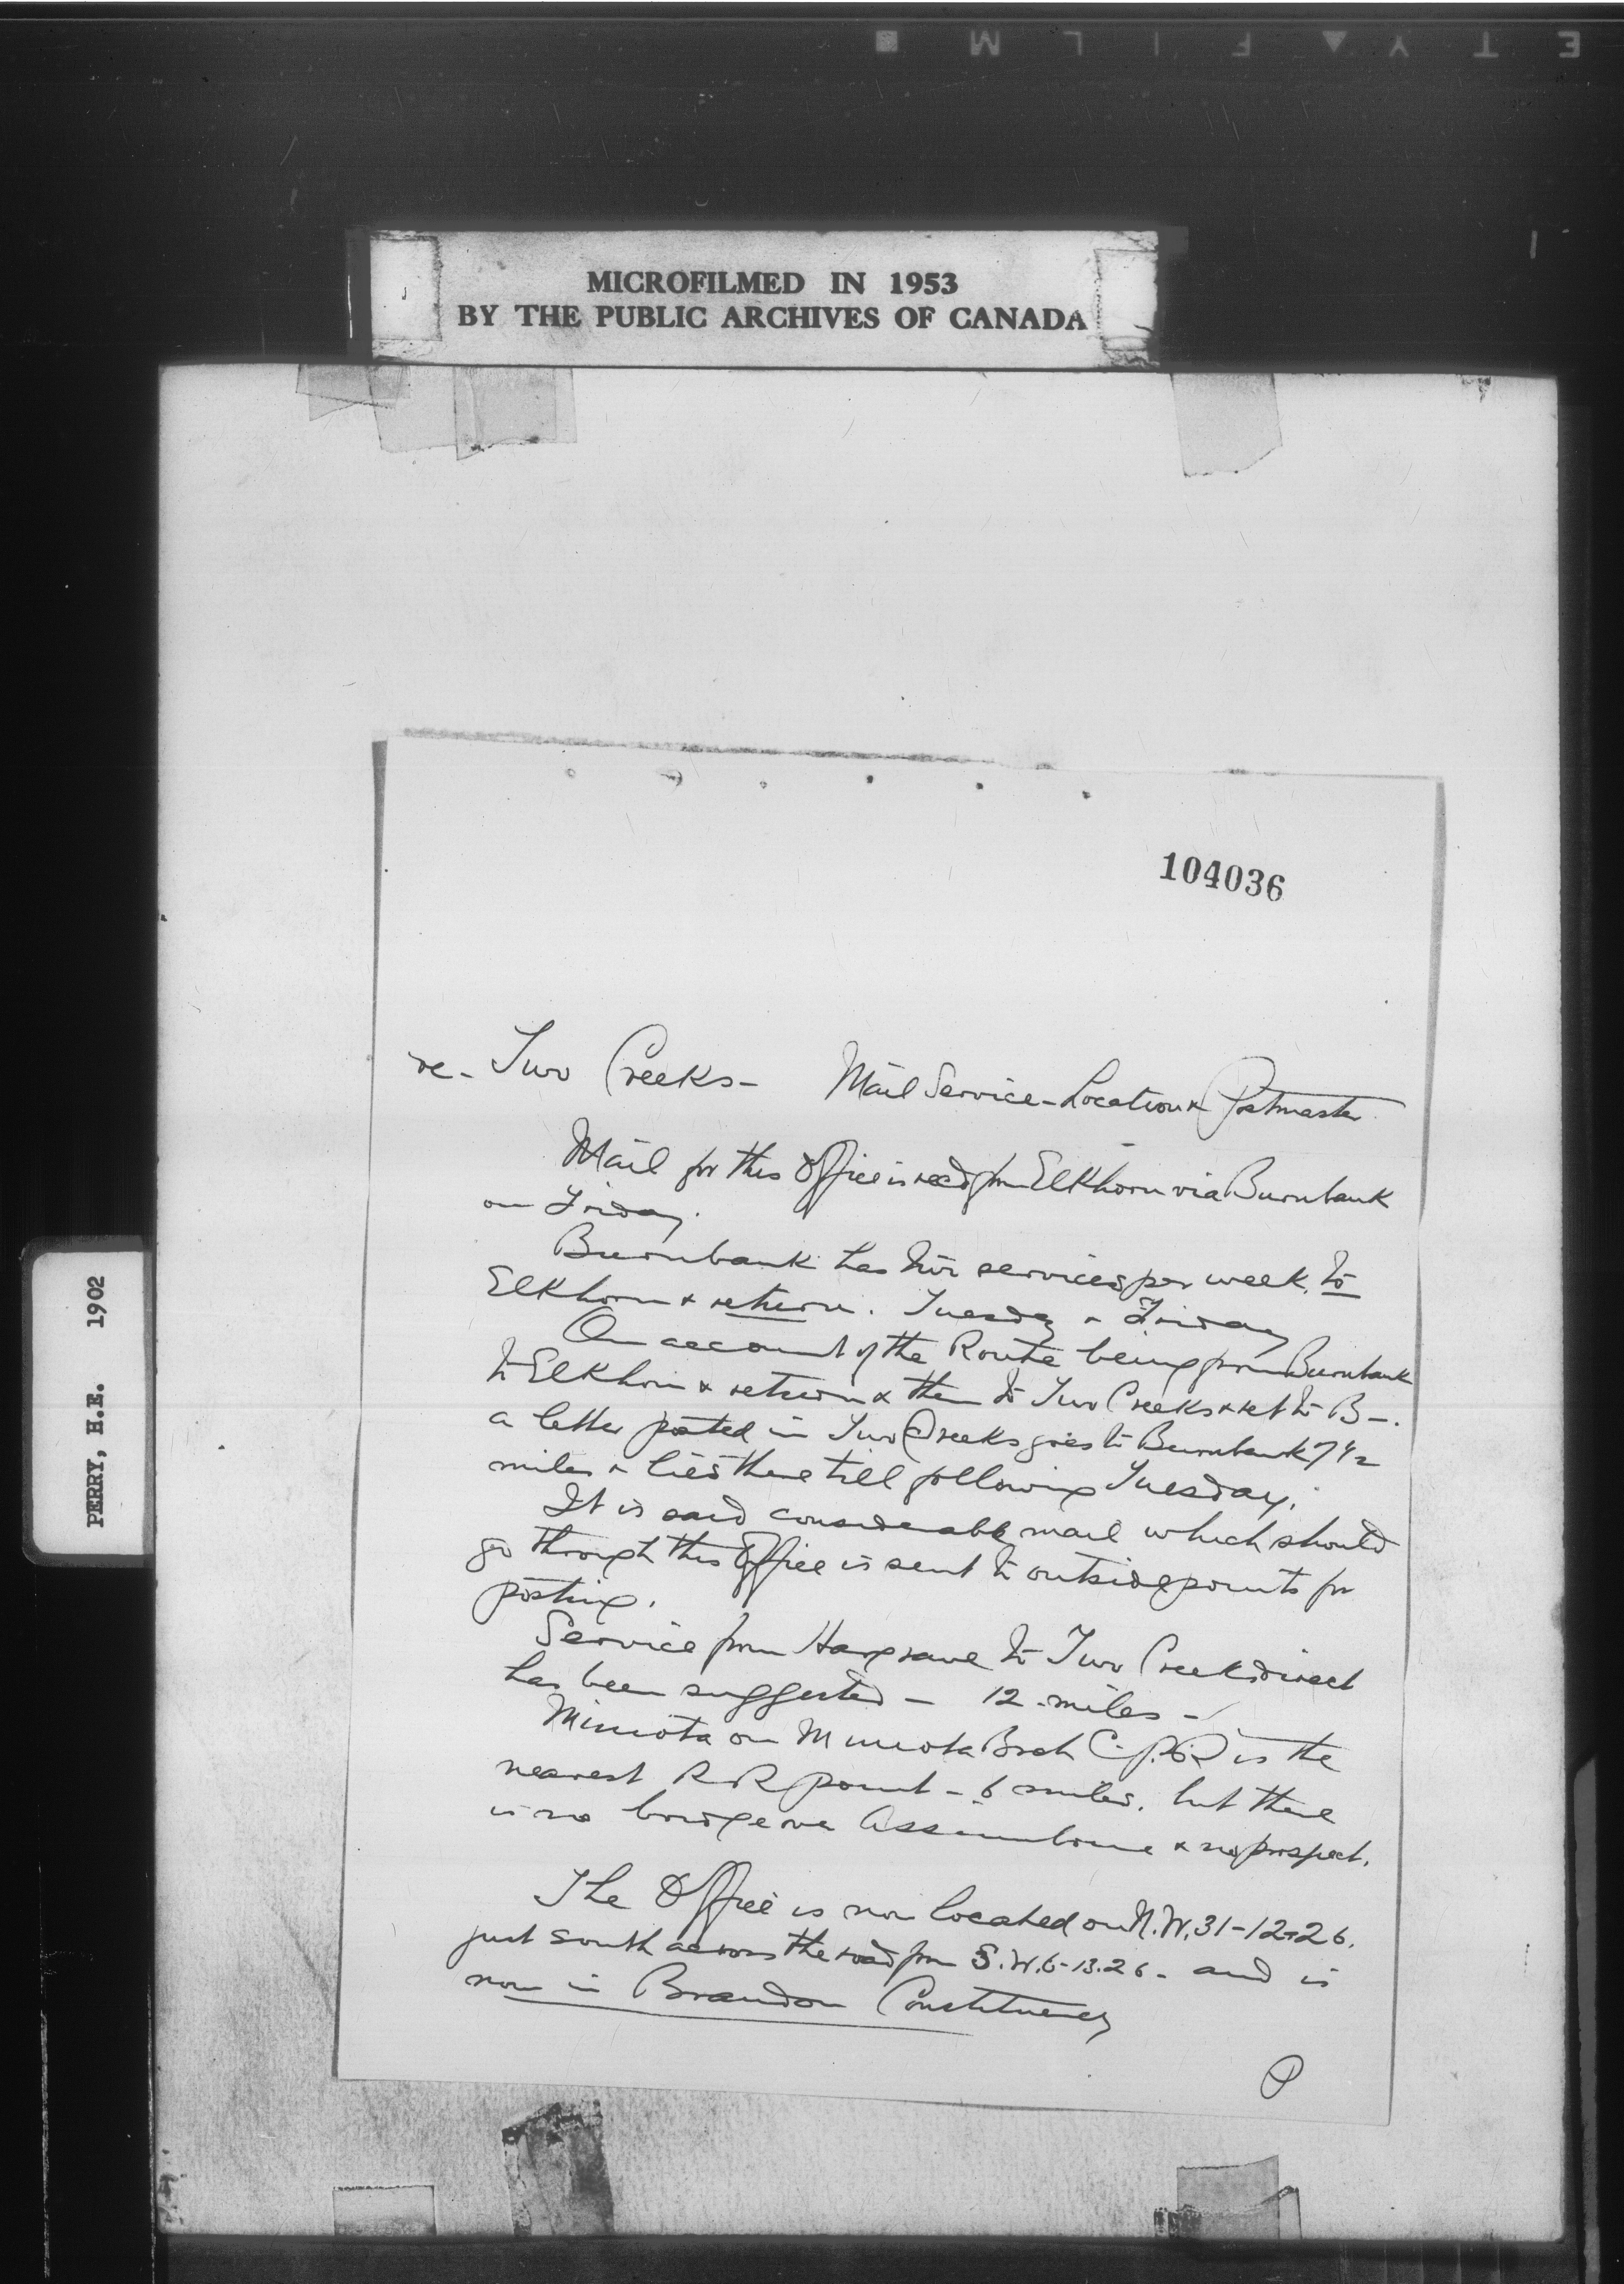 SAFETY FILM ■
MICROFILMED IN 1953
BY THE PUBLIC ARCHIVES OF CANADA
PERRY, H.E. 1902
104036
re- Two Creeks- Mail Service - Location & Postmaster
Mail for this Office is recd from Elkhorn via Burnbank
on Friday.
Burnbank has two services per week, to
Elkhorn & return. Tuesday & Friday
On account of the Route being from Burnbank
to Elkhorn & return & then to Two Creeks & ret to B-.
a letter posted in Two Creeks goes to Burnbank 7 1/2
miles & lies there till following Tuesday.
It is said considerable mail which should
go through this Office is sent to outside points for
posting.
Service from Hargrave to Two Creeks direct
has been suggested - 12 miles -
Miniota on Miniota Brch C.P.R is the
nearest RR point - 6 miles. but there
is no bridge over Assiniboine & no prospect.
The Office is now located on N.W. 31-12-26.
just south across the road from S.W. 6-13.26 - and is
now in Brandon Constituency
P